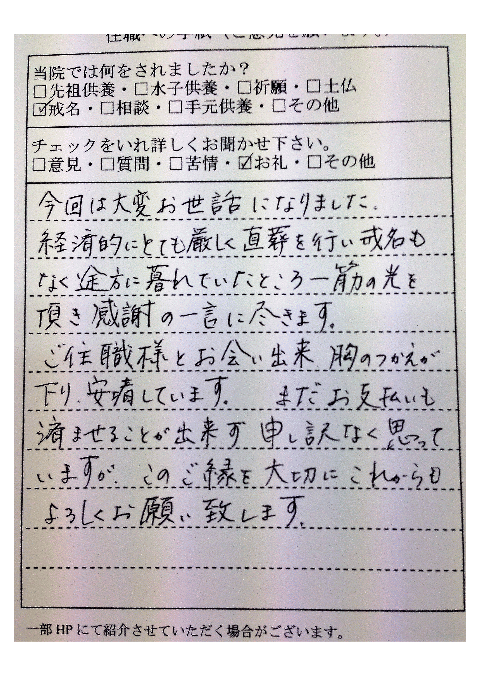 住職への手紙（ご意見お願い致します）
当院では何をされましたか？
□先祖供養・□水子供養・□祈願・□土仏
☑戒名・□相談・□手元供養・□その他
チェックをいれ詳しくお聞かせ下さい。
□意見・□質問・□苦情・☑お礼・□その他
今回は大変お世話になりました。
経済的にとても厳しく直葬を行い戒名も
なく途方に暮れていたところ一筋の光を
頂き感謝の一言に尽きます。
ご住職様とお会い出来 胸のつかえが
下り、安堵しています。 まだお支払いも
済ませることが出来ず 申し訳なく思って
いますが、このご縁を大切にこれからも
よろしくお願い致します。
一部HPにて紹介させていただく場合がございます。